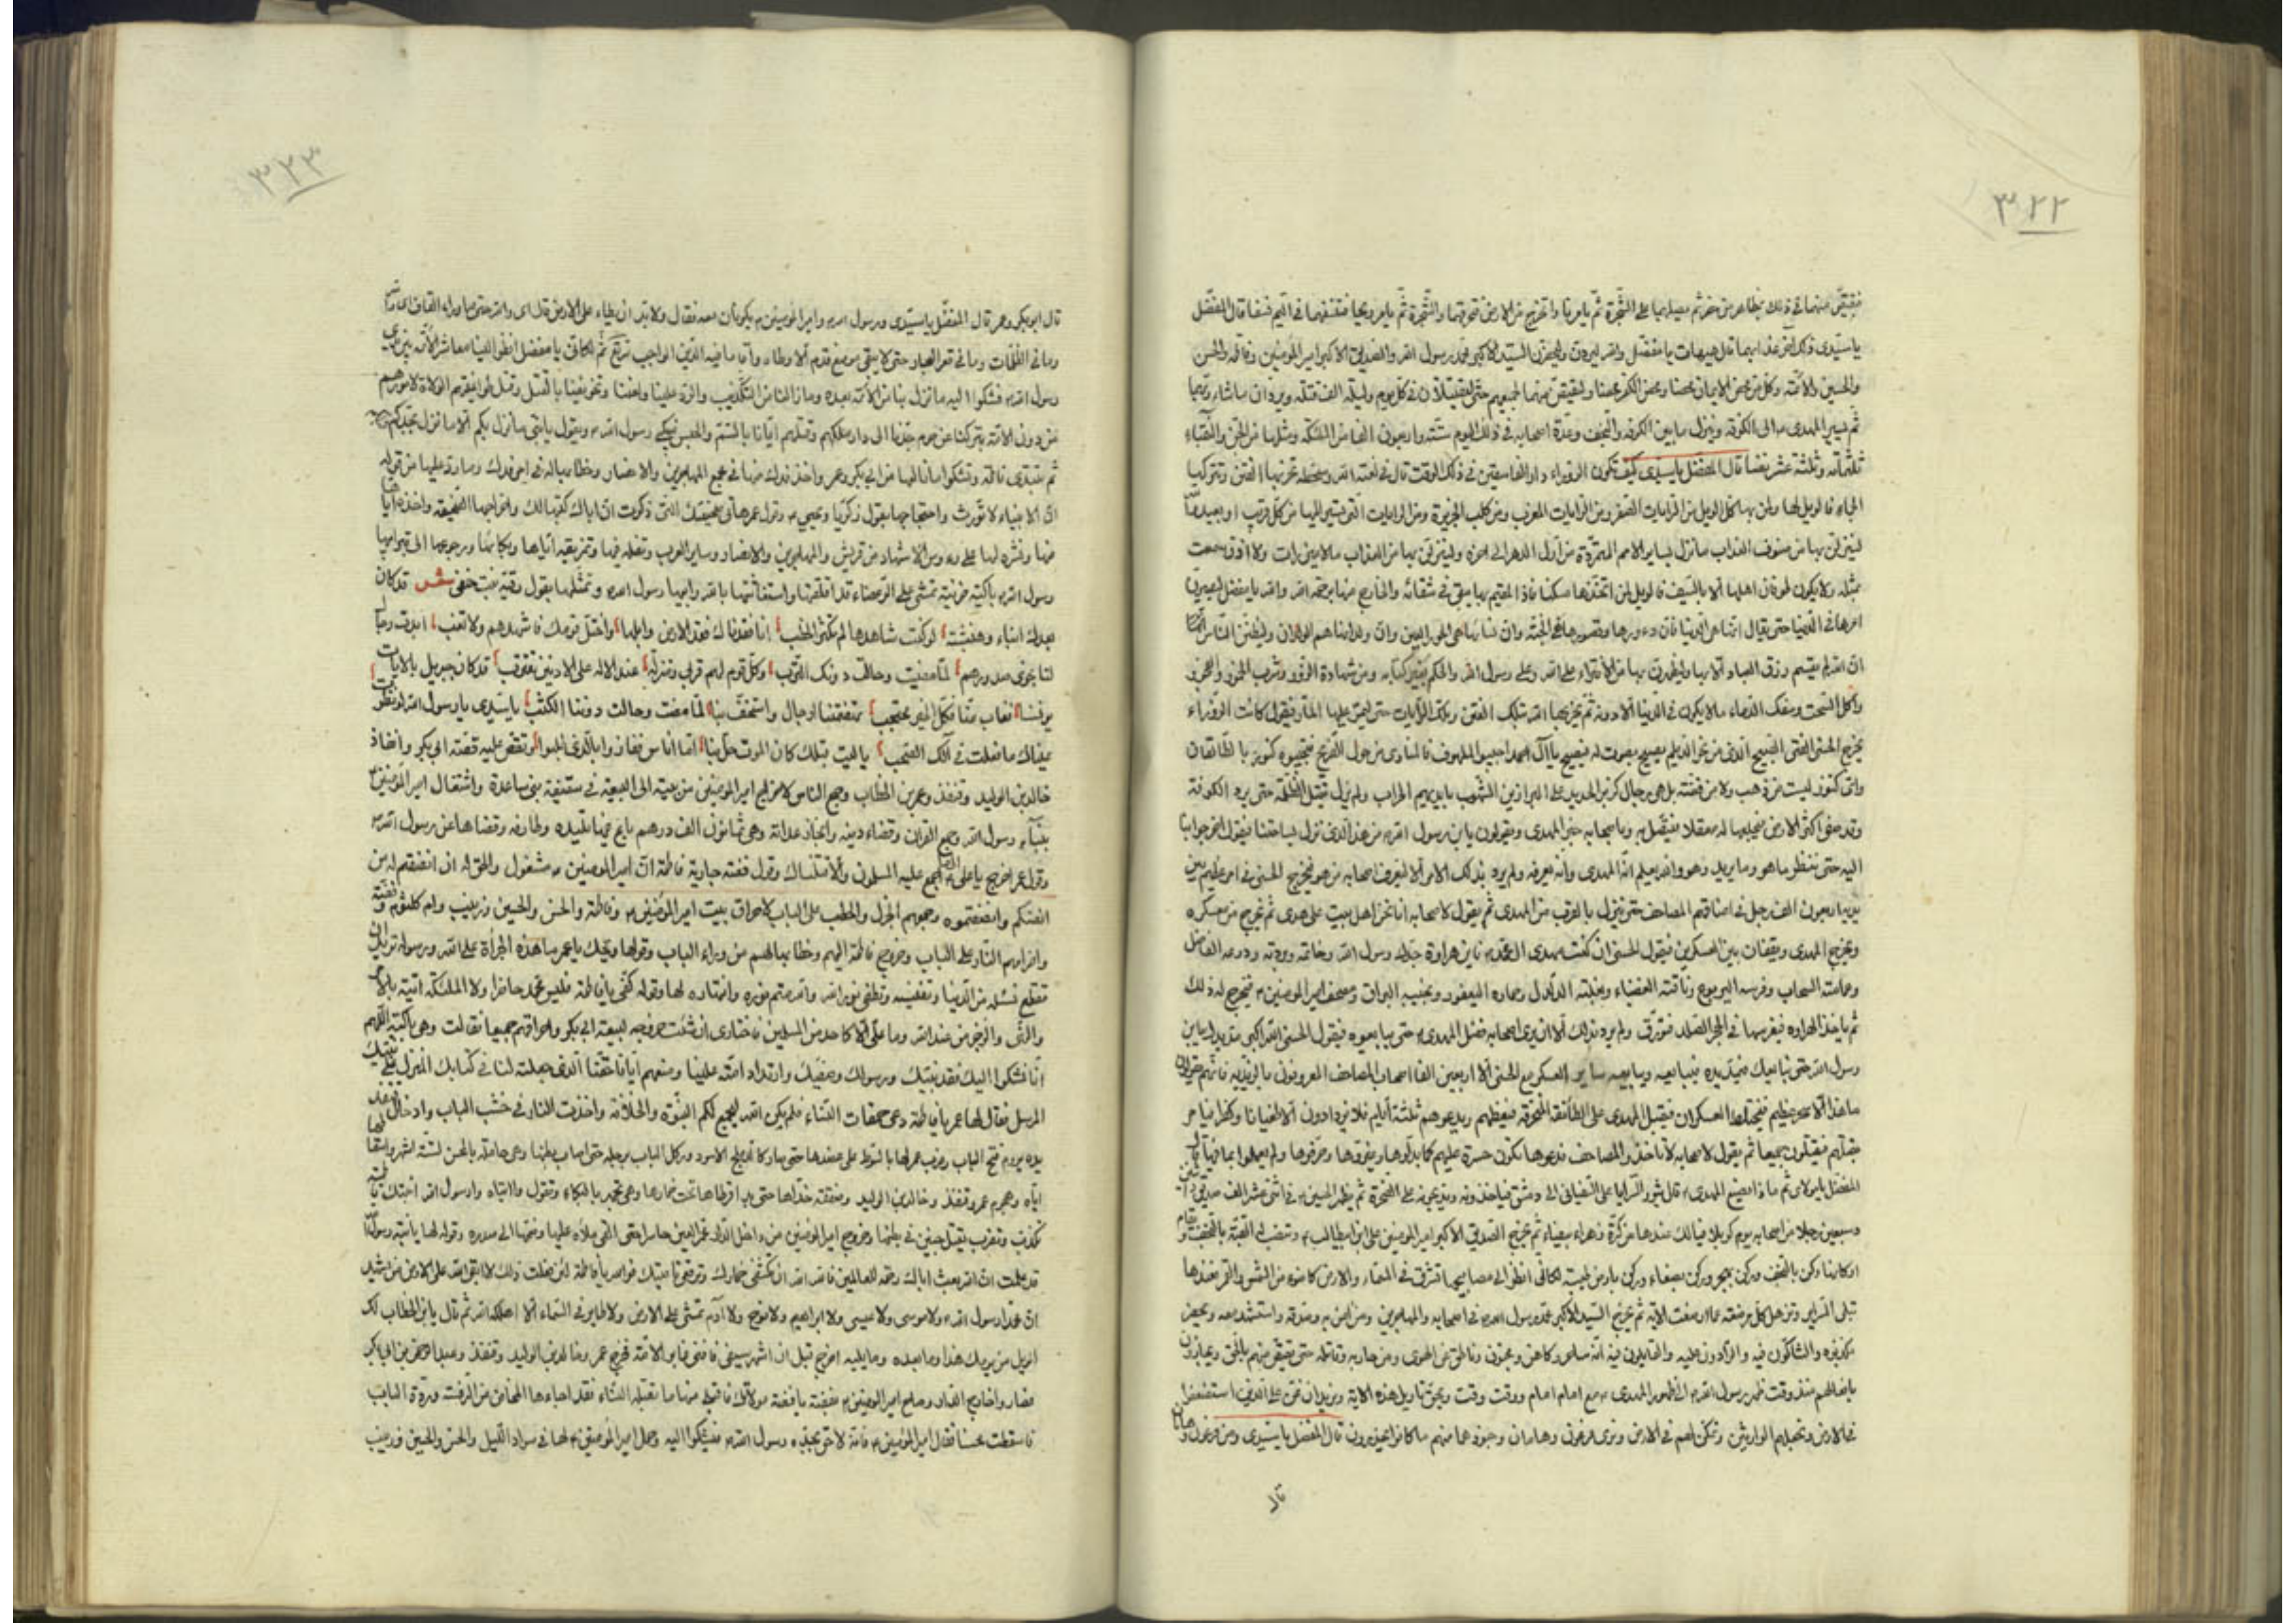 ٣٢٢
فيقتص منهما في ذلك بمظالم من حضر ثم يصلبهما على الشجرة ثم يأمر نارا تخرج من الارض فتحرقهما والشجرة ثم يأمر ريحا فتنسفهما في اليم نسفا قال المفضل
يا سيدى ذلك اخر عذابهما قال هيهات يا مفضل والله ليردن وليحضرن السيد الاكبر محمد رسول الله والصديق الاكبر امير المؤمنين وفاطمة والحسن
والحسين والائمة وكل من محض الايمان محضا ومحض الكفر محضا وليقتص منهما لجميعهم حتى ليقتلان في كل يوم وليلة الف قتلة ويردان ما شاء ربهما
ثم يسير المهدى الى الكوفة وينزل ما بين الكوفة والنجف وعدة اصحابه في ذلك اليوم ستة واربعون الفا من الملئكة ومثلها من الجن والنقباء
ثلثمائة وثلثة عشر نفسا قال المفضل يا سيدى كيف تكون الزوراء دار الفاسقين في ذلك الوقت قال في لعنة الله وسخطه تخربها الفتن وتتركها
فالويل لها ولمن بها كل الويل من الرايات الصفر ومن الرايات المغرب ومن كلب الجزيرة ومن الرايات التي تسير اليها من كل قريب او بعيد والله
لينزلن بها من صنوف العذاب ما نزل بساير الامم المتمردة من اول الدهر الى اخره ولينزلن بها من العذاب ما لا عين رات ولا اذن سمعت
بمثله ولا يكون طوفان اهلها الا بالسيف فالويل لمن اتخذها مسكنا فان المقيم بها يبقى في شقائه والخارج منها برحمة الله والله يا مفضل ليصيرن
امرها في الدنيا حتى يقال انها هي الدنيا وان دورها وقصورها هي الجنة وان نساءها هي الحور العين وان ولدانها هم الولدان وليظنن الناس
ان الله لم يقسم رزق العباد الا بها وليظهرن بها من الافتراء على الله وعلى رسول الله والحكم بغير كتابه ومن شهادة الزور وشرب الخمور والفجور
واكل السحت وسفك الدماء ما لا يكون في الدنيا الا دونه ثم يخربها الله بتلك الفتن وبتلك الرايات حتى ليمر عليها المار فيقول كانت الزوراء
يخرج الحسنى الفتى الصبيح الذى من نحو الديلم يصيح بصوت له فصيح يا آل احمد اجيبوا الملهوف والمنادى من حول الضريح فتجيبه كنوز بالطالقان
واى كنوز ليست من ذهب ولا من فضة بل هى رجال كزبر الحديد على البراذين الشهب بايديهم الحراب ولم يزل يقتل الظلمة حتى يرد الكوفة
وقد صفى اكثر الارض فيجعلها له معقلا فيتصل به وباصحابه خبر المهدى ويقولون يا بن رسول الله من هذا الذى نزل بساحتنا فيقول اخرجوا بنا
اليه حتى ننظر ما هو وما يريد وهو والله يعلم انه المهدى وانه ليعرفه ولم يرد بذلك الامر الا ليعرف اصحابه من هو فيخرج الحسنى في امر عظيم بين
يديه اربعون الف رجل في اعناقهم المصاحف حتى ينزل بالقرب من المهدى ثم يقول لاصحابه انا نحن اهل بيت على هدى ثم يخرج من عسكره
ويخرج المهدى ويقفان بين العسكرين فيقول الحسنى ان كنت مهدى آل محمد فاين هراوة جدك رسول الله وخاتمه وبردته ودرعه الفاضل
وعمامته السحاب وفرسه اليربوع وناقته العضباء وبغلته الدلدل وحماره اليعفور ونجيبه البراق ومصحف امير المؤمنين فيخرج له ذلك
ثم ياخذ الهراوة فيغرسها في الحجر الصلد فتورق ولم يرد ذلك الا ان يرى اصحابه فضل المهدى حتى يبايعوه فيقول الحسنى الله اكبر مد يدك يا بن
رسول الله حتى نبايعك فيمد يده فيبايعه ويبايعه ساير العسكر مع الحسنى الا اربعين الفا اصحاب المصاحف المعروفون بالزيدية فانهم يقولون
ما هذا الا سحر عظيم فيختلط العسكران فيقبل المهدى على الطائفة المنحرفة فيعظهم ويدعوهم ثلثة أيام فلا يزدادون الا طغيانا وكفرا فيامر
بقتلهم فيقتلون جميعا ثم يقول لاصحابه لا تاخذوا المصاحف ودعوها تكون حسرة عليهم كما بدلوها وغيروها وحرفوها ولم يعملوا بما فيها قال
المفضل يا مولاى ثم ماذا يصنع المهدى قال يثور السرايا على السفيانى الى دمشق فياخذونه ويذبحونه على الصخرة ثم يظهر الحسين في اثنى عشر الف صديق واثنين
وسبعين رجلا من اصحابه يوم كربلا فيالك عندها من كرة زهراء بيضاء ثم يخرج الصديق الاكبر امير المؤمنين على ابن ابيطالب وتنصب له القبة بالنجف وتقام
اركانها ركن بالنجف وركن بهجر وركن بصنعاء وركن بارض طيبة لكانى انظر الى مصابيحها تشرق في السماء والارض كاضوء من الشمس والقمر فعندها
تبلى السراير وتذهل كل مرضعة عما ارضعت الاية ثم يخرج السيد الاكبر محمد رسول الله في اصحابه والمهاجرين ومن امن به وصدقه واستشهد معه ويحضر
مكذبوه والشاكون فيه والرادون عليه والقايلون فيه انه ساحر وكاهن ومجنون وناطق عن الهوى ومن حاربه وقاتله حتى يقتص منهم بالحق ويجازون
بافعالهم منذ وقت ظهر رسول الله الى ظهور المهدى مع امام امام ووقت وقت ويحق تاويل هذه الاية ونريد ان نمن على الذين استضعفوا
في الارض ونجعلهم الوارثين ونمكن لهم في الارض ونرى فرعون وهامان وجنودهما منهم ما كانوا يحذرون قال المفضل يا سيدى ومن فرعون وهامان
قال
٣٢٣
قال ابو بكر وعمر قال المفضل يا سيدى ورسول الله وامير المؤمنين يكونان معه فقال ولا بد ان يطاء على الارض قال اى والله حتى ما وراء القاف اى والله
وما في الظلمات وما في قعر البحار حتى لا يبقى موضع قدم الا وطاه واقاما فيه الدين الواجب ثم لكانى يا مفضل انظر الينا معاشر الائمة بين يدى
رسول الله فنشكوا اليه ما نزل بنا من الامة بعده وما نالنا من التكذيب والرد علينا ولعننا وتخويفنا بالقتل
من دون الامة بتركنا عن حرم جدنا الى دار ملكهم وقتلهم ايانا بالسم والحبس فيبكى رسول الله ويقول يا بنى ما نزل بكم الا ما نزل بجدكم
ثم تبتدى فاطمة وتشكوا ما نالها من ابى بكر وعمر واخذ فدك منها في مجمع المهاجرين والانصار وخطابها له في امر فدك وما رد عليها من قوله
ان الانبياء لا تورث واحتجاجها بقول زكريا ويحيى وقول عمر هاتى صحيفتك التى ذكرت ان اباك كتبها لك واخراجها الصحيفة واخذه اياها
منها ونشره لها على رءوس الاشهاد من قريش والمهاجرين والانصار وساير العرب وتفله فيها وتمزيقه اياها وبكائها ورجوعها الى قبر ابيها
رسول الله باكية حزينة تمشى على الرمضاء قد اقلقتها واستغاثتها بالله وبابيها رسول الله وتمثلها بقول رقية بنت صفى شعر قد كان
بعدك انباء وهنبثة لو كنت شاهدها لم تكثر الخطب انا فقدناك فقد الارض وابلها واختل قومك فاشهدهم ولا تغب ابدت رجال
لنا نجوى صدورهم لما مضيت وحالت دونك الترب وكل قوم لهم قربى ومنزلة عند الاله على الادنين مقترب قد كان جبريل بالايات
يونسنا فغاب عنا فكل الخير محتجب تجهمتنا رجال واستخف بنا لما مضت وحالت دوننا الكثب يا سيدى يا رسول الله لو نظرت
عيناك ما فعلت في الك الصحب يا ليت قبلك كان الموت حل بنا وتقص عليه قصة ابى بكر وانفاذ
خالد بن الوليد وقنفذ وعمر بن الخطاب وجمع الناس لاخراج امير المؤمنين من بيته الى البيعة في سقيفة بنى ساعدة واشتغال امير المؤمنين
رسول الله وجمع القران وقضاء دينه وانجاز عداته وهى ثمانون الف درهم باع فيها تليده وطارفه وقضاها عن رسول الله
وقول عمر اخرج يا على الى ما اجمع عليه المسلمون والا قتلناك وقول فضة جارية فاطمة ان امير المؤمنين مشغول والحق له ان انصفتم له من
انفسكم وانصفتموه وجمعهم الجزل والحطب على الباب لاحراق بيت امير المؤمنين وفاطمة والحسن والحسين وزينب وام كلثوم وفضة
واضرامهم النار على الباب وخروج فاطمة اليهم وخطابها لهم من وراء الباب وقولها ويحك يا عمر ما هذه الجرأة على الله ورسوله تريد ان
تقطع نسله من الدنيا وتفنيه وتطفى نور الله والله متم نوره وانتهاره لها وقوله كفى يا فاطمة فليس محمد حاضرا ولا الملئكة اتية بالامر
والنهى والزجر من عند الله وما على الا كاحد من المسلمين فاختارى ان شئت خروجه لبيعة ابى بكر واحراقهم جميعا فقالت وهى باكية اللهم
انا نشكوا اليك فقد نبيك ورسولك وصفيك وارتداد امته علينا ومنعهم ايانا حقنا الذى جعلته لنا في كتابك المنزل على نبيك
المرسل فقال لها عمر يا فاطمة دعى حمقات النساء فلم يكن الله ليجمع لكم النبوة والخلافة واخذت النار في خشب الباب وادخال
يده يروم فتح الباب وضرب عمر لها بالسوط على عضدها حتى صار كالدملج الاسود وركل الباب برجله حتى اصاب بطنها وهى حاملة بالمحسن لستة اشهر واسقاطها
اياه وهجوم عمر وقنفذ وخالد بن الوليد وصفقته خدها حتى بدا قرطاها تحت خمارها وهى تجهر بالبكاء وتقول واابتاه وارسول الله ابنتك فاطمة
تكذب وتضرب ويقتل جنين في بطنها وخروج امير المؤمنين من داخل الدار محمر العينين حاسرا حتى القى ملاءه عليها وضمها الى صدره وقوله لها يا بنت رسول الله
قد علمت ان الله بعث اباك رحمة للعالمين فالله الله ان تكشفى خمارك وترفعى ناصيتك فوالله يا فاطمة لئن فعلت ذلك لا ابقى الله على الارض من يشهد
ان محمدا رسول الله ولا موسى ولا عيسى ولا ابراهيم ولا نوح ولا آدم تمشى على الارض ولا طاير في السماء الا اهلكه الله ثم قال يا بن الخطاب لك
الويل من يومك هذا وما بعده وما يليه اخرج قبل ان اشهر سيفى فافنى غابر الامة فخرج عمر وخالد بن الوليد وقنفذ وعبد الرحمن بن ابى بكر
فصاروا خارج الدار وصاح امير المؤمنين بفضة يا فضة مولاتك فاقبلى منها ما تقبله النساء فقد اجاءها المخاض من الرفسة ورده الباب
فاسقطت محسنا فقال امير المؤمنين فانه لاحق بجده رسول الله فيشكوا اليه وحمل امير المؤمنين لها في سواد الليل والحسن والحسين وزينب